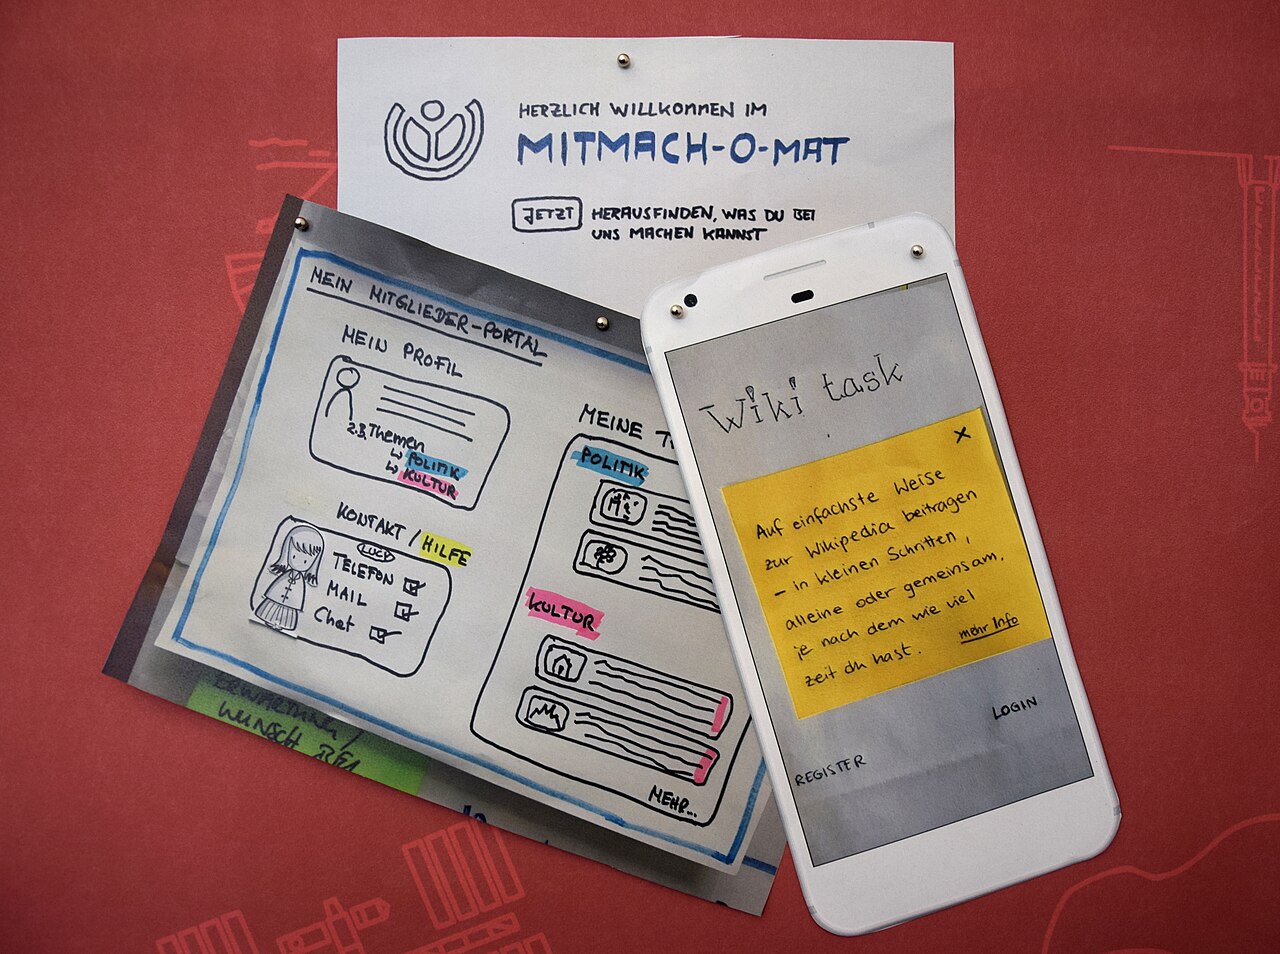 HERZLICH WILLKOMMEN IM
MITMACH-O-MAT
JETZT HERAUSFINDEN, WAS DU BEI
UNS MACHEN KANNST
MEIN MITGLIEDER-PORTAL
MEIN PROFIL
z.B. Themen
↳ POLITIK
↳ KULTUR
KONTAKT / HILFE
LUCY
TELEFON
MAIL
Chat
MEINE T
POLITIK
KULTUR
MEHR...
ERWARTUNG /
WUNSCH
Wiki task
X
Auf einfachste Weise
zur Wikipedia beitragen
- in kleinen Schritten,
alleine oder gemeinsam,
je nach dem wie viel
zeit du hast.
mehr Info
LOGIN
REGISTER